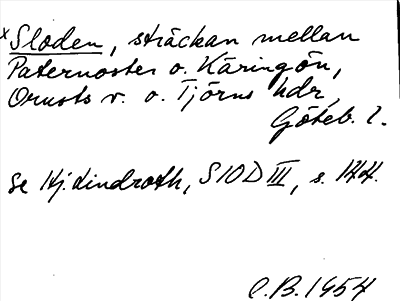 x Sloden, sträckan mellan
Paternoster o. Käringön,
Orusts v. o. Tjörns hdr,
Göteb. l.
Se Hj. Lindroth, SIOD III, s. 144.
C.B. 1954